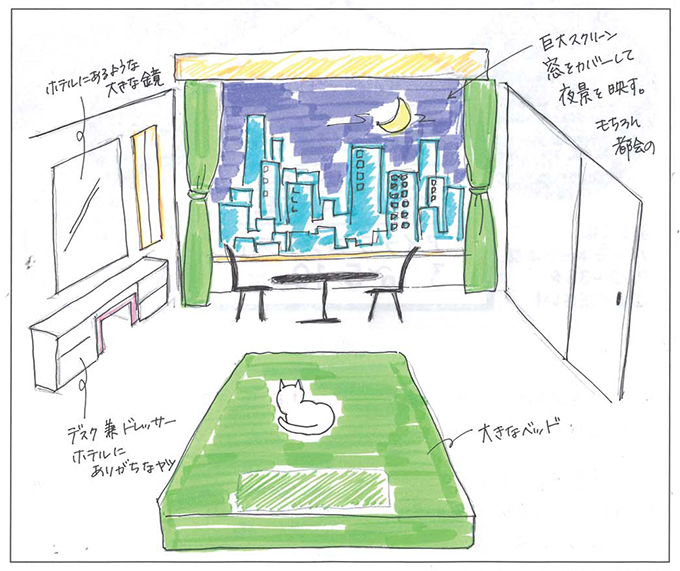 ホテルにあるような
大きな鏡
巨大スクリーン
窓をカバーして
夜景を映す。
もちろん
都会の
デスク兼ドレッサー
ホテルに
ありがちなヤツ
大きなベッド